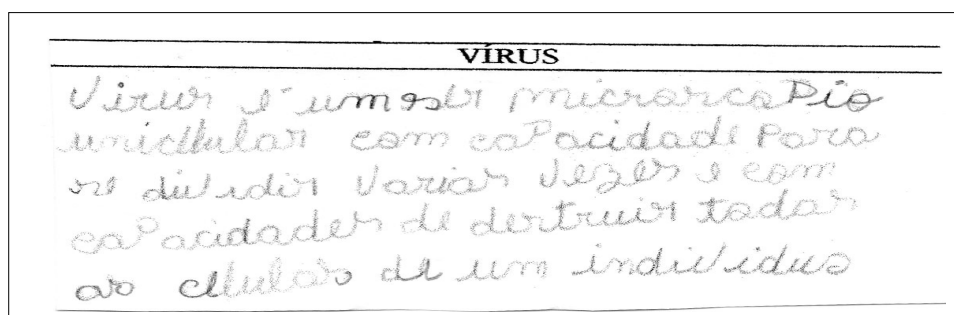 VÍRUS
Virus é um ser microscopio
unicelular com capacidade para
se dividir varias vezes e com
capacidades de destruir todas
as celulas de um individuo